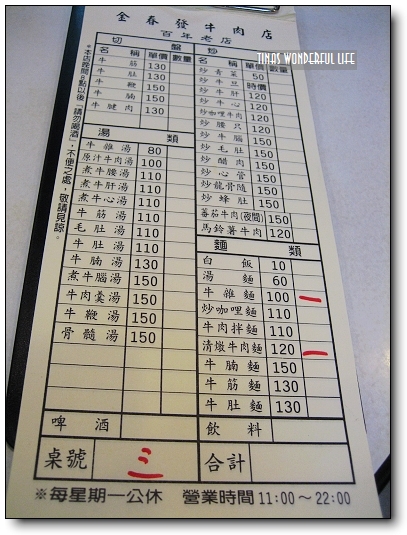 金春發牛肉店
百年老店
TINAS WONDERFUL LIFE
※本店晚間8點以後「請勿喝酒」,不便之處,敬請見諒。
切盤
名稱 單價 數量
牛筋 130
牛肚 130
牛鞭 150
牛腩 150
牛腱肉 130
湯類
牛雜湯 80
原汁牛肉湯 100
煮牛腰湯 110
煮牛肝湯 110
煮牛心湯 110
牛筋湯 110
毛肚湯 110
牛肚湯 110
牛腩湯 130
煮牛腦湯 150
牛肉羹湯 150
牛鞭湯 150
骨髓湯 150
炒
名稱 單價 數量
炒青菜 50
炒牛旦 時價
炒牛肝 120
炒牛心 120
炒咖哩牛肉 120
炒腰只 120
炒牛腦 150
炒毛肚 150
炒醋肉 150
炒心管 150
炒龍骨隨 150
炒蜂肚 150
蕃茄牛肉(夜間) 150
馬鈴薯牛肉 120
麵類
白飯 10
湯麵 60
牛雜麵 100 一
炒咖哩麵 110
牛肉拌麵 110
清燉牛肉麵 120 一
牛腩麵 150
牛筋麵 130
牛肚麵 130
啤酒 飲料
桌號 三 合計
※每星期一公休 營業時間11:00～22:00